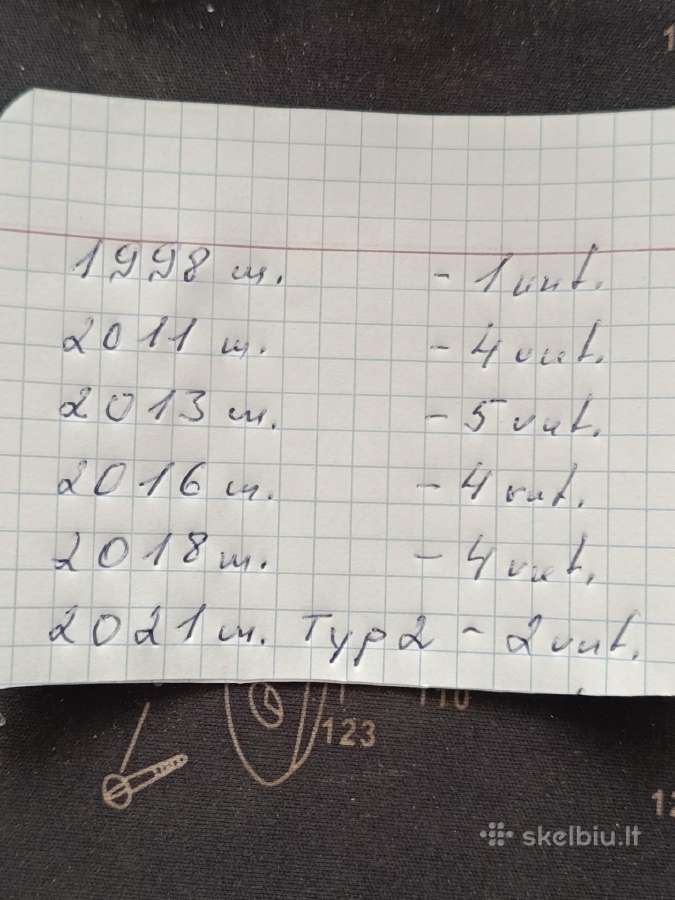 1998 m. - 1 vnt.
2011 m. - 4 vnt.
2013 m. - 5 vnt.
2016 m. - 4 vnt.
2018 m. - 4 vnt.
2021 m. Typ 2 - 2 vnt.
123
110
skelbiu.lt